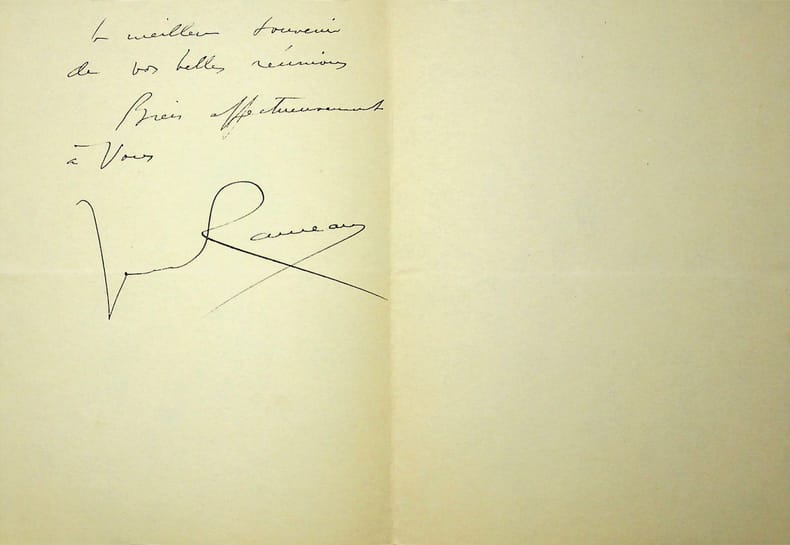 le meilleur souvenir
de vos belles réunions
Bien affectueusement
à Vous
Rameau